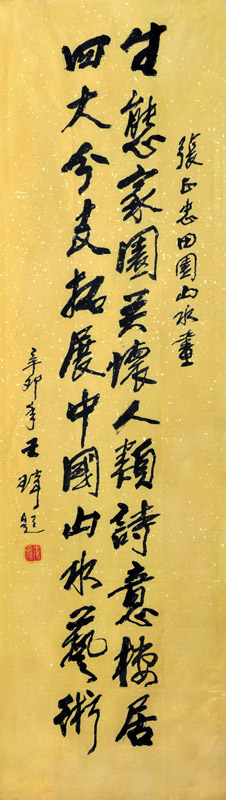 張正忠田園山水畫
生態家園美懷人類詩意棲居
四大分支拓展中國山水藝術
辛卯年王琦題